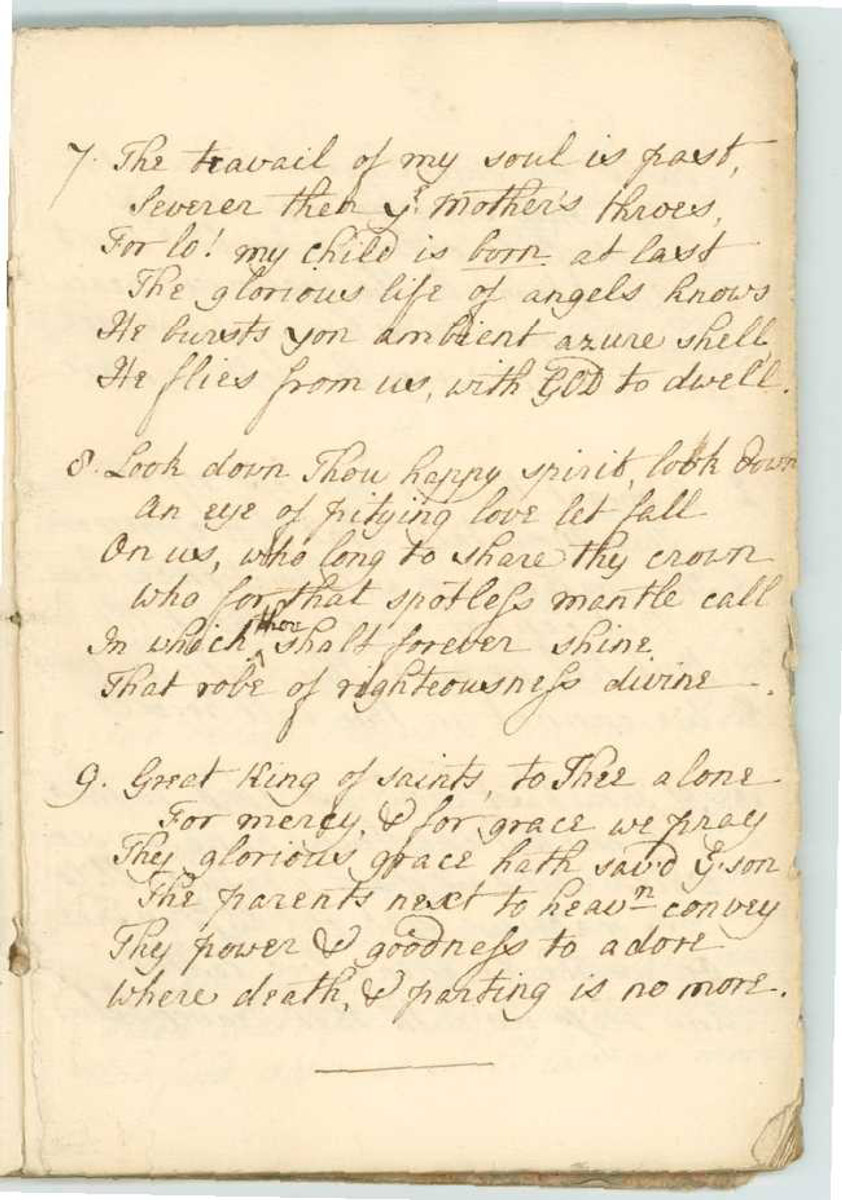 7. The travail of my soul is past,
Severer then yr. Mother's throes,
For lo! my child is born at last
The glorious life of angels knows
He bursts yon ambient azure shell,
He flies from us, with GOD to dwell.
8. Look down Thou happy spirit, look down
An eye of pitying love let fall
On us, who long to share thy crown
Who for that spotless mantle call
In which thou shalt forever shine
That robe of righteousness divine.
9. Great King of saints, to Thee alone
For mercy, & for grace we pray
Thy glorious grace hath sav'd ye. son
The parents next to heavn convey
Thy power & goodness to adore
Where death, & parting is no more.